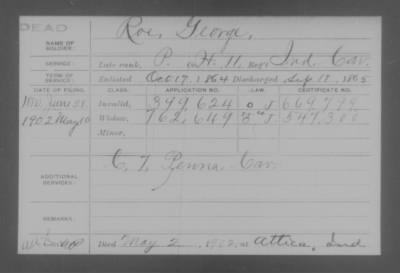 DEAD
NAME OF SOLDIER: Roe, George,
SERVICE: Late rank, P. Co. H. 11, Reg't Ind. Cav.
TERM OF SERVICE: Enlisted Oct 17, 1864 Discharged Sep 18, 1865
DATE OF FILING. CLASS. APPLICATION NO. LAW. CERTIFICATE NO.
Invalid, 399,624
1902 May 10 Widow, 762,649 547,300
Minor,
ADDITIONAL SERVICES: Penna Cav.
REMARKS:
Died May 2, 1902, at Attica, Ind